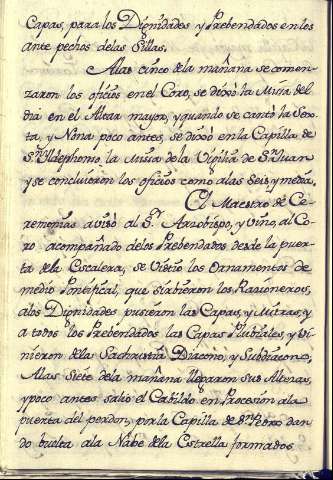 Capas, para los Dignidades y Prebendados en los
ante pechos delas Sillas.
Alas cinco dela mañana se comen-
zaron los oficios en el Coro, se dixo la Missa del
dia en el Altar mayor, y quando se cantò la Sex-
ta, y Nona poco antes, se dixo en la Capilla de
Sn. Ildephonso la Missa de la Vigilia de Sn. Juan
y se concluieron los oficios como alas Seis y media.
El Maestro de Ce-
remonias avisò al Sr. Arzobispo, y vino, al Co-
ro acompañado delos Prebendados, desde la puer-
ta dela Escalera, se vistio los Ornamentos de
medio Pontifical, que sirbieron los Razioneros,
alos Dignidades pusieron las Capas, y Mitras, y
a todos los Prebendados las Capas Plubiales, y vi-
nieron dela Sachristia Diacono, y Subdiacono;
Alas Siete dela mañana llegaron sus Altezas,
y poco antes saliò el Cabildo en Procesion ala
puerta del perdon, por la Capilla de Sn. Pedro dan
do buelta ala Nabe dela Estrella formados